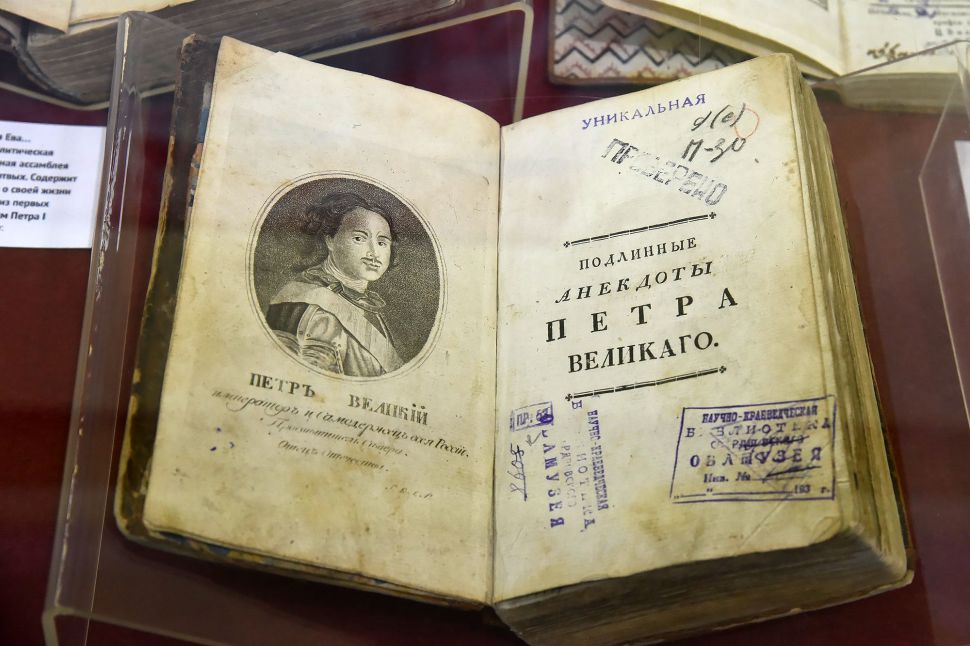 я Ева...
литическая
ная ассамблея
твых. Содержит
о своей жизни
из первых
м Петра I
г.
ПЕТРЪ ВЕЛИКІЙ
императоръ и Самодержецъ всея Россіи.
Отецъ Отечества.
УНИКАЛЬНАЯ
П-30
ПРОВЕРЕНО
ПОДЛИННЫЕ
АНЕКДОТЫ
ПЕТРА
ВЕЛИКАГО.
ПР. 53
8608
НАУЧНО-КРАЕВЕДЧЕСКАЯ
ОБЛМУЗЕЯ
НАУЧНО-КРАЕВЕДЧЕСКАЯ
БИБЛИОТЕКА
ОБЛМУЗЕЯ
Инв. №
" " 193 г.